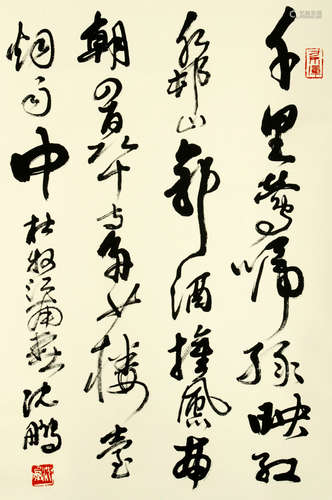 千里鶯啼綠映紅
水邨山郭酒旗風南
朝四百八十寺多少樓臺
烟雨中 杜牧江南春 沈鹏